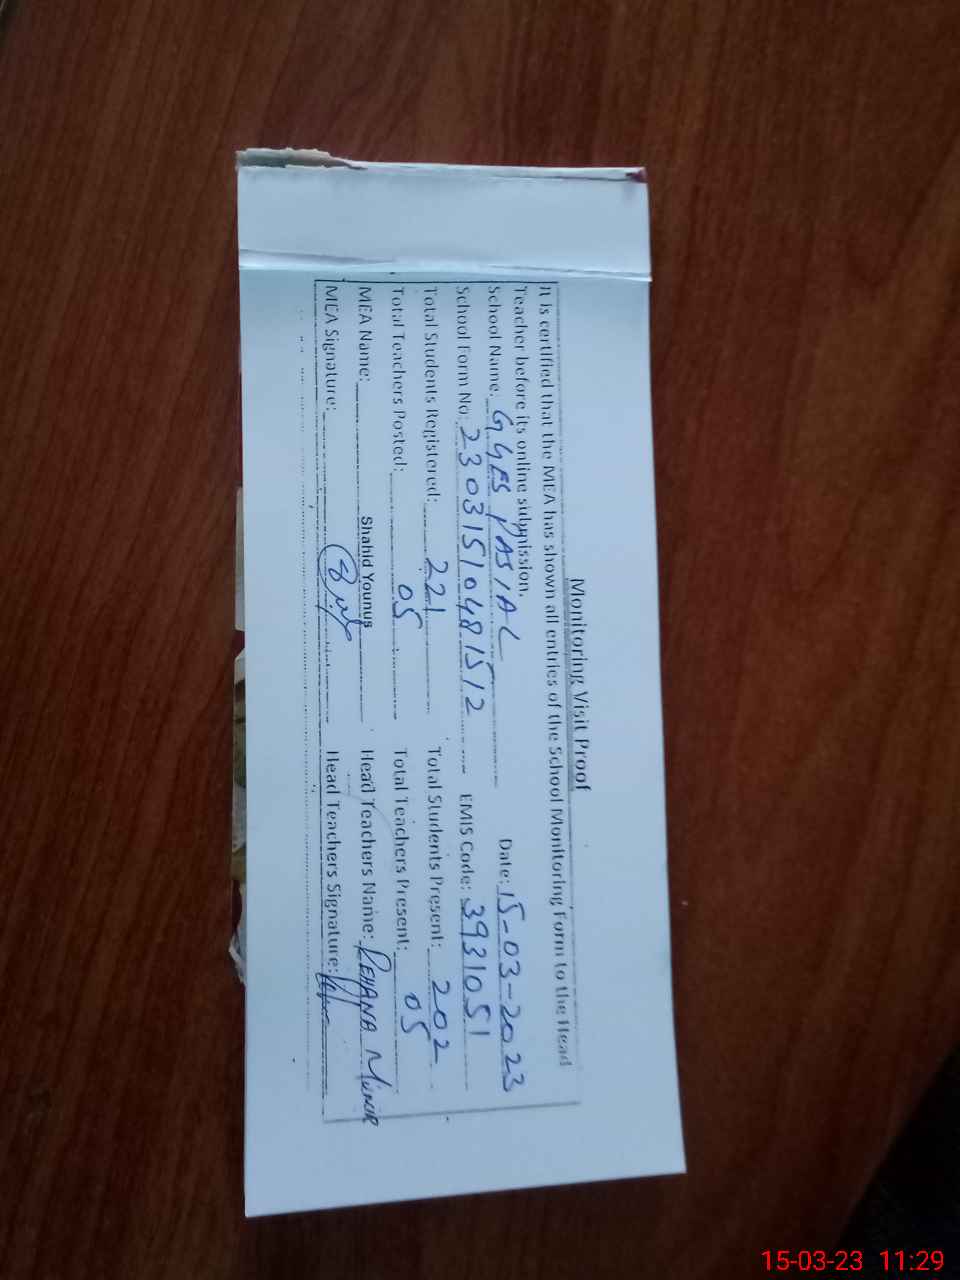 Monitoring Visit Proof
It is certified that the MEA has shown all entries of the School Monitoring Form to the Head
Teacher before its online submission.
School Name: GGES PASIAL Date: 15-03-2023
School Form No: 23031510481512 EMIS Code: 3931051
Total Students Registered: 221 Total Students Present: 202
Total Teachers Posted: 05 Total Teachers Present: 05
MEA Name: Shahid Younus Head Teachers Name: REHANA MUNIR
MEA Signature: Head Teachers Signature:
15-03-23 11:29